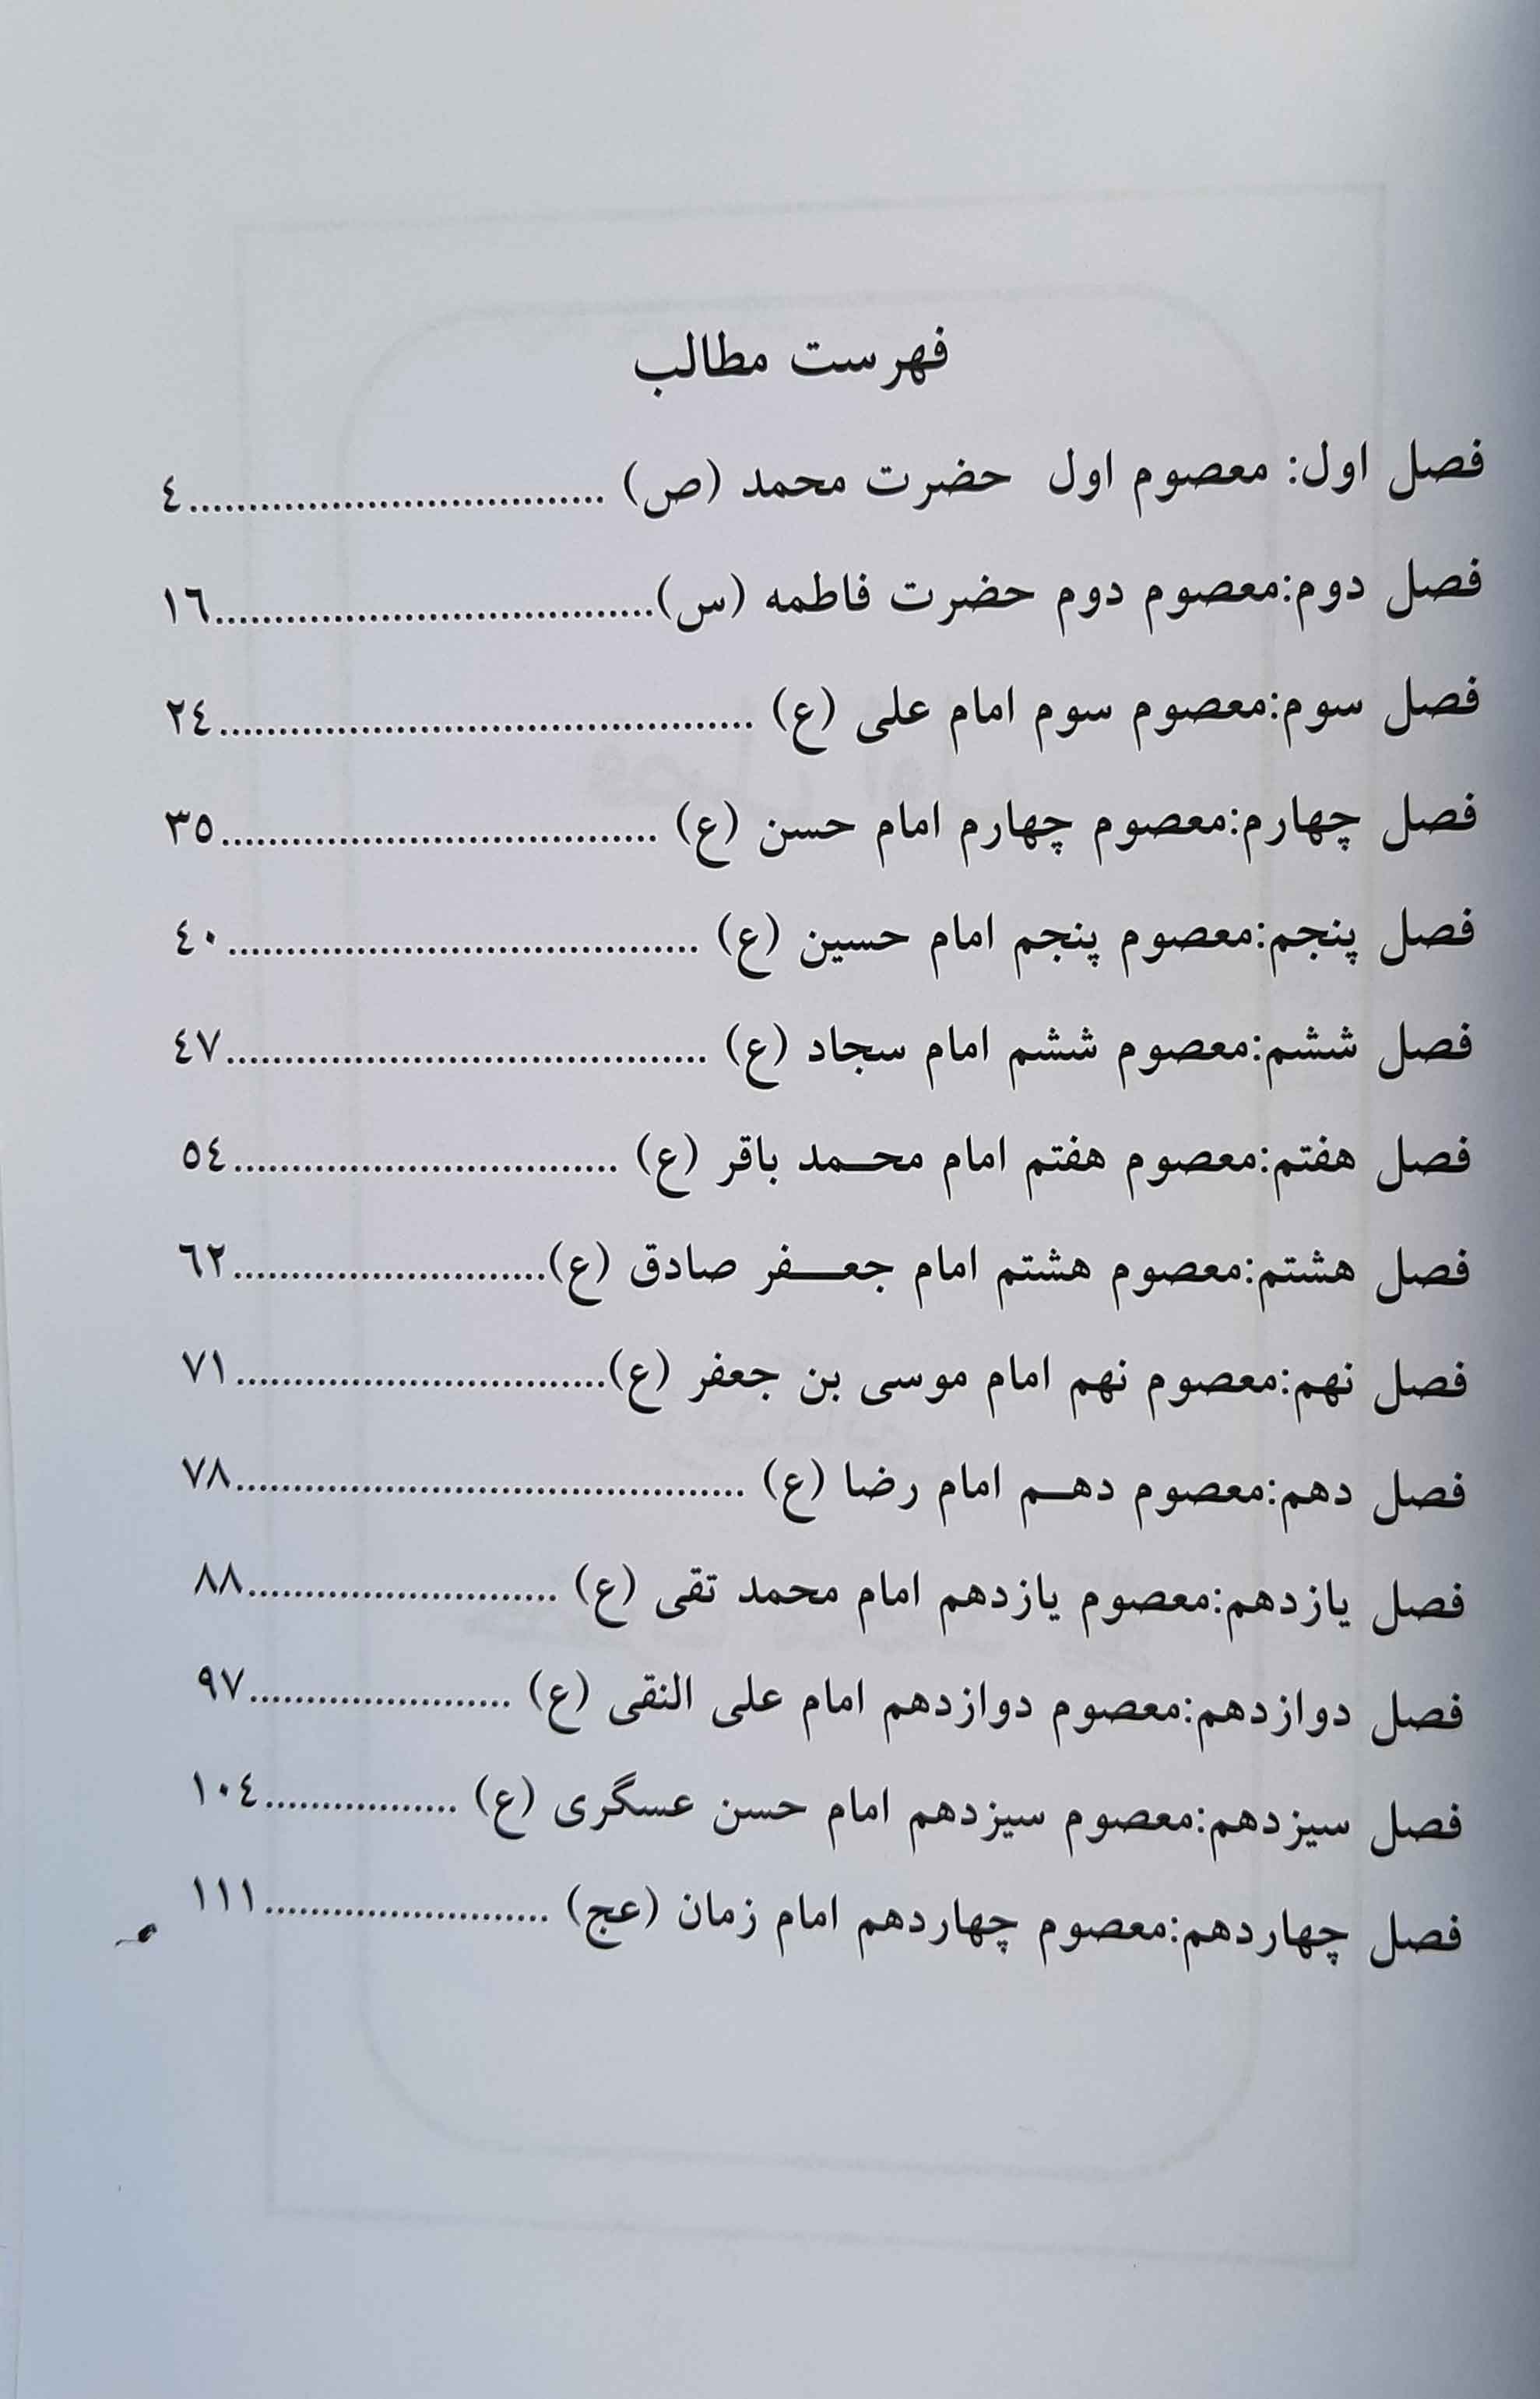 فهرست مطالب
فصل اول: معصوم اول حضرت محمد (ص) ...................................٤
فصل دوم:معصوم دوم حضرت فاطمه (س).....................................١٦
فصل سوم:معصوم سوم امام علی (ع) .............................................٢٤
فصل چهارم:معصوم چهارم امام حسن (ع) .....................................٣٥
فصل پنجم:معصوم پنجم امام حسین (ع) ........................................٤٠
فصل ششم:معصوم ششم امام سجاد (ع) .........................................٤٧
فصل هفتم:معصوم هفتم امام محـمد باقر (ع) .................................٥٤
فصل هشتم:معصوم هشتم امام جعـــفر صادق (ع)...........................٦٢
فصل نهم:معصوم نهم امام موسی بن جعفر (ع)................................٧١
فصل دهم:معصوم دهـم امام رضا (ع) ............................................٧٨
فصل یازدهم:معصوم یازدهم امام محمد تقی (ع) ...........................٨٨
فصل دوازدهم:معصوم دوازدهم امام علی النقی (ع) .......................٩٧
فصل سیزدهم:معصوم سیزدهم امام حسن عسگری (ع) .................١٠٤
فصل چهاردهم:معصوم چهاردهم امام زمان (عج) .........................١١١